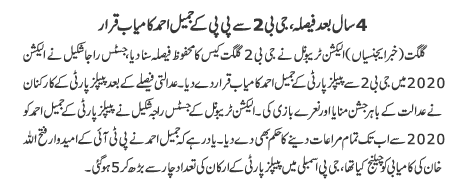 4 سال بعد فیصلہ، جی بی 2 سے پی پی کے جمیل احمد کامیاب قرار
گلگت (خبر ایجنسیاں) الیکشن ٹریبونل نے جی بی 2 گلگت کیس کا محفوظ فیصلہ سنا دیا، جسٹس راجا شکیل نے الیکشن
2020 میں جی بی 2 سے پیپلز پارٹی کے جمیل احمد کو کامیاب قرار دے دیا۔ عدالتی فیصلے کے بعد پیپلز پارٹی کے کارکنان
نے عدالت کے باہر جشن منایا اور نعرے بازی کی۔ الیکشن ٹریبونل کے جسٹس راجہ شکیل نے پیپلز پارٹی کے جمیل احمد کو
2020 سے اب تک تمام مراعات دینے کا حکم بھی دے دیا۔ یاد رہے کہ جمیل احمد نے پی ٹی آئی کے امیدوار فتح اللہ
خان کی کامیابی کو چیلنج کیا تھا، جی بی اسمبلی میں پیپلز پارٹی کے ارکان کی تعداد چار سے بڑھ کر 5 ہوگئی۔